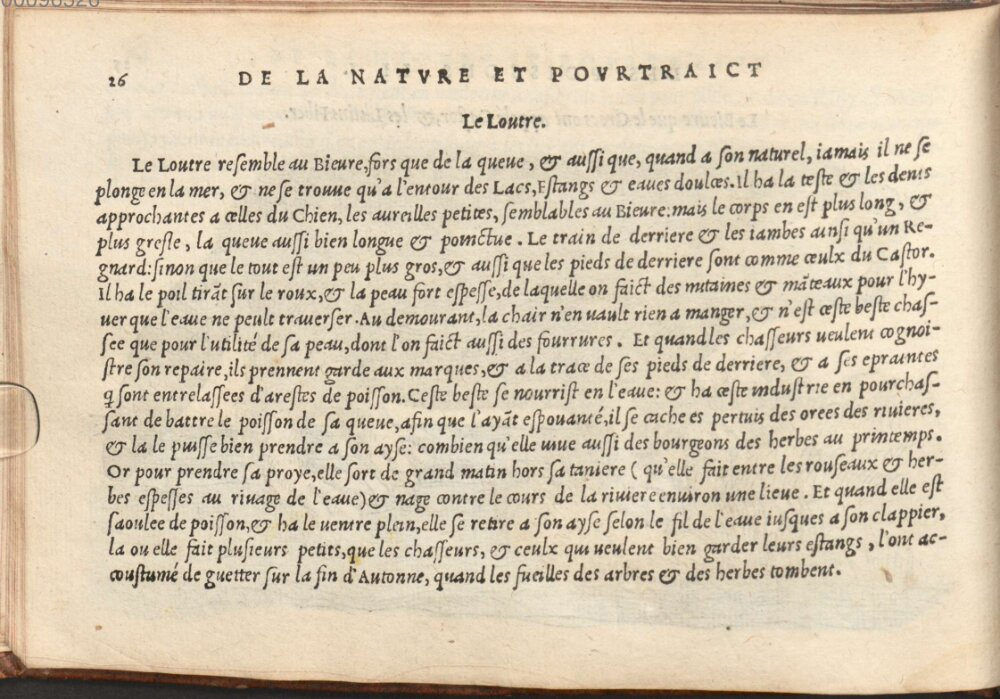 26 DE LA NATVRE ET POVRTRAICT
Le Loutre.
Le Loutre resemble au Bieure, fors que de la queue, & aussi que, quand a son naturel, iamais il ne se
plonge en la mer, & ne se trouue qu'a l'entour des Lacs, Estangs & eaues doulces. Il ha la teste & les dents
approchantes a celles du Chien, les aureilles petites, semblables au Bieure: mais le corps en est plus long, &
plus gresle, la queue aussi bien longue & poinctue. Le train de derriere & les iambes ainsi qu'un Re-
gnard: sinon que le tout est un peu plus gros, & aussi que les pieds de derriere sont comme ceulx du Castor.
Il ha le poil tirãt sur le roux, & la peau fort espesse, de laquelle on faict des mitaines & mãteaux pour l'hy-
uer que l'eaue ne peult trauerser. Au demourant, la chair n'en vault rien a manger, & n'est ceste beste chas-
see que pour l'utilité de sa peau, dont l'on faict aussi des fourrures. Et quand les chasseurs ueulent cognoi-
stre son repaire, ils prennent garde aux marques, & a la trace de ses pieds de derriere, & a ses epraintes
q̃ sont entrelassees d'arestes de poisson. Ceste beste se nourrist en l'eaue: & ha ceste industrie en pourchas-
sant de battre le poisson de sa queue, afin que l'ayãt espouanté, il se cache es pertuis des orees des riuieres,
& la le puisse bien prendre a son ayse: combien qu'elle uiue aussi des bourgeons des herbes au printemps.
Or pour prendre sa proye, elle sort de grand matin hors sa taniere ( qu'elle fait entre les rouseaux & her-
bes espesses au riuage de l'eaue) & nage contre le cours de la riuiere enuiron une lieue. Et quand elle est
saoulee de poisson, & ha le uentre plein, elle se retire a son ayse selon le fil de l'eaue iusques a son clappier,
la ou elle fait plusieurs petits, que les chasseurs, & ceulx qui ueulent bien garder leurs estangs, l'ont ac-
coustumé de guetter sur la fin d'Autonne, quand les fueilles des arbres & des herbes tombent.